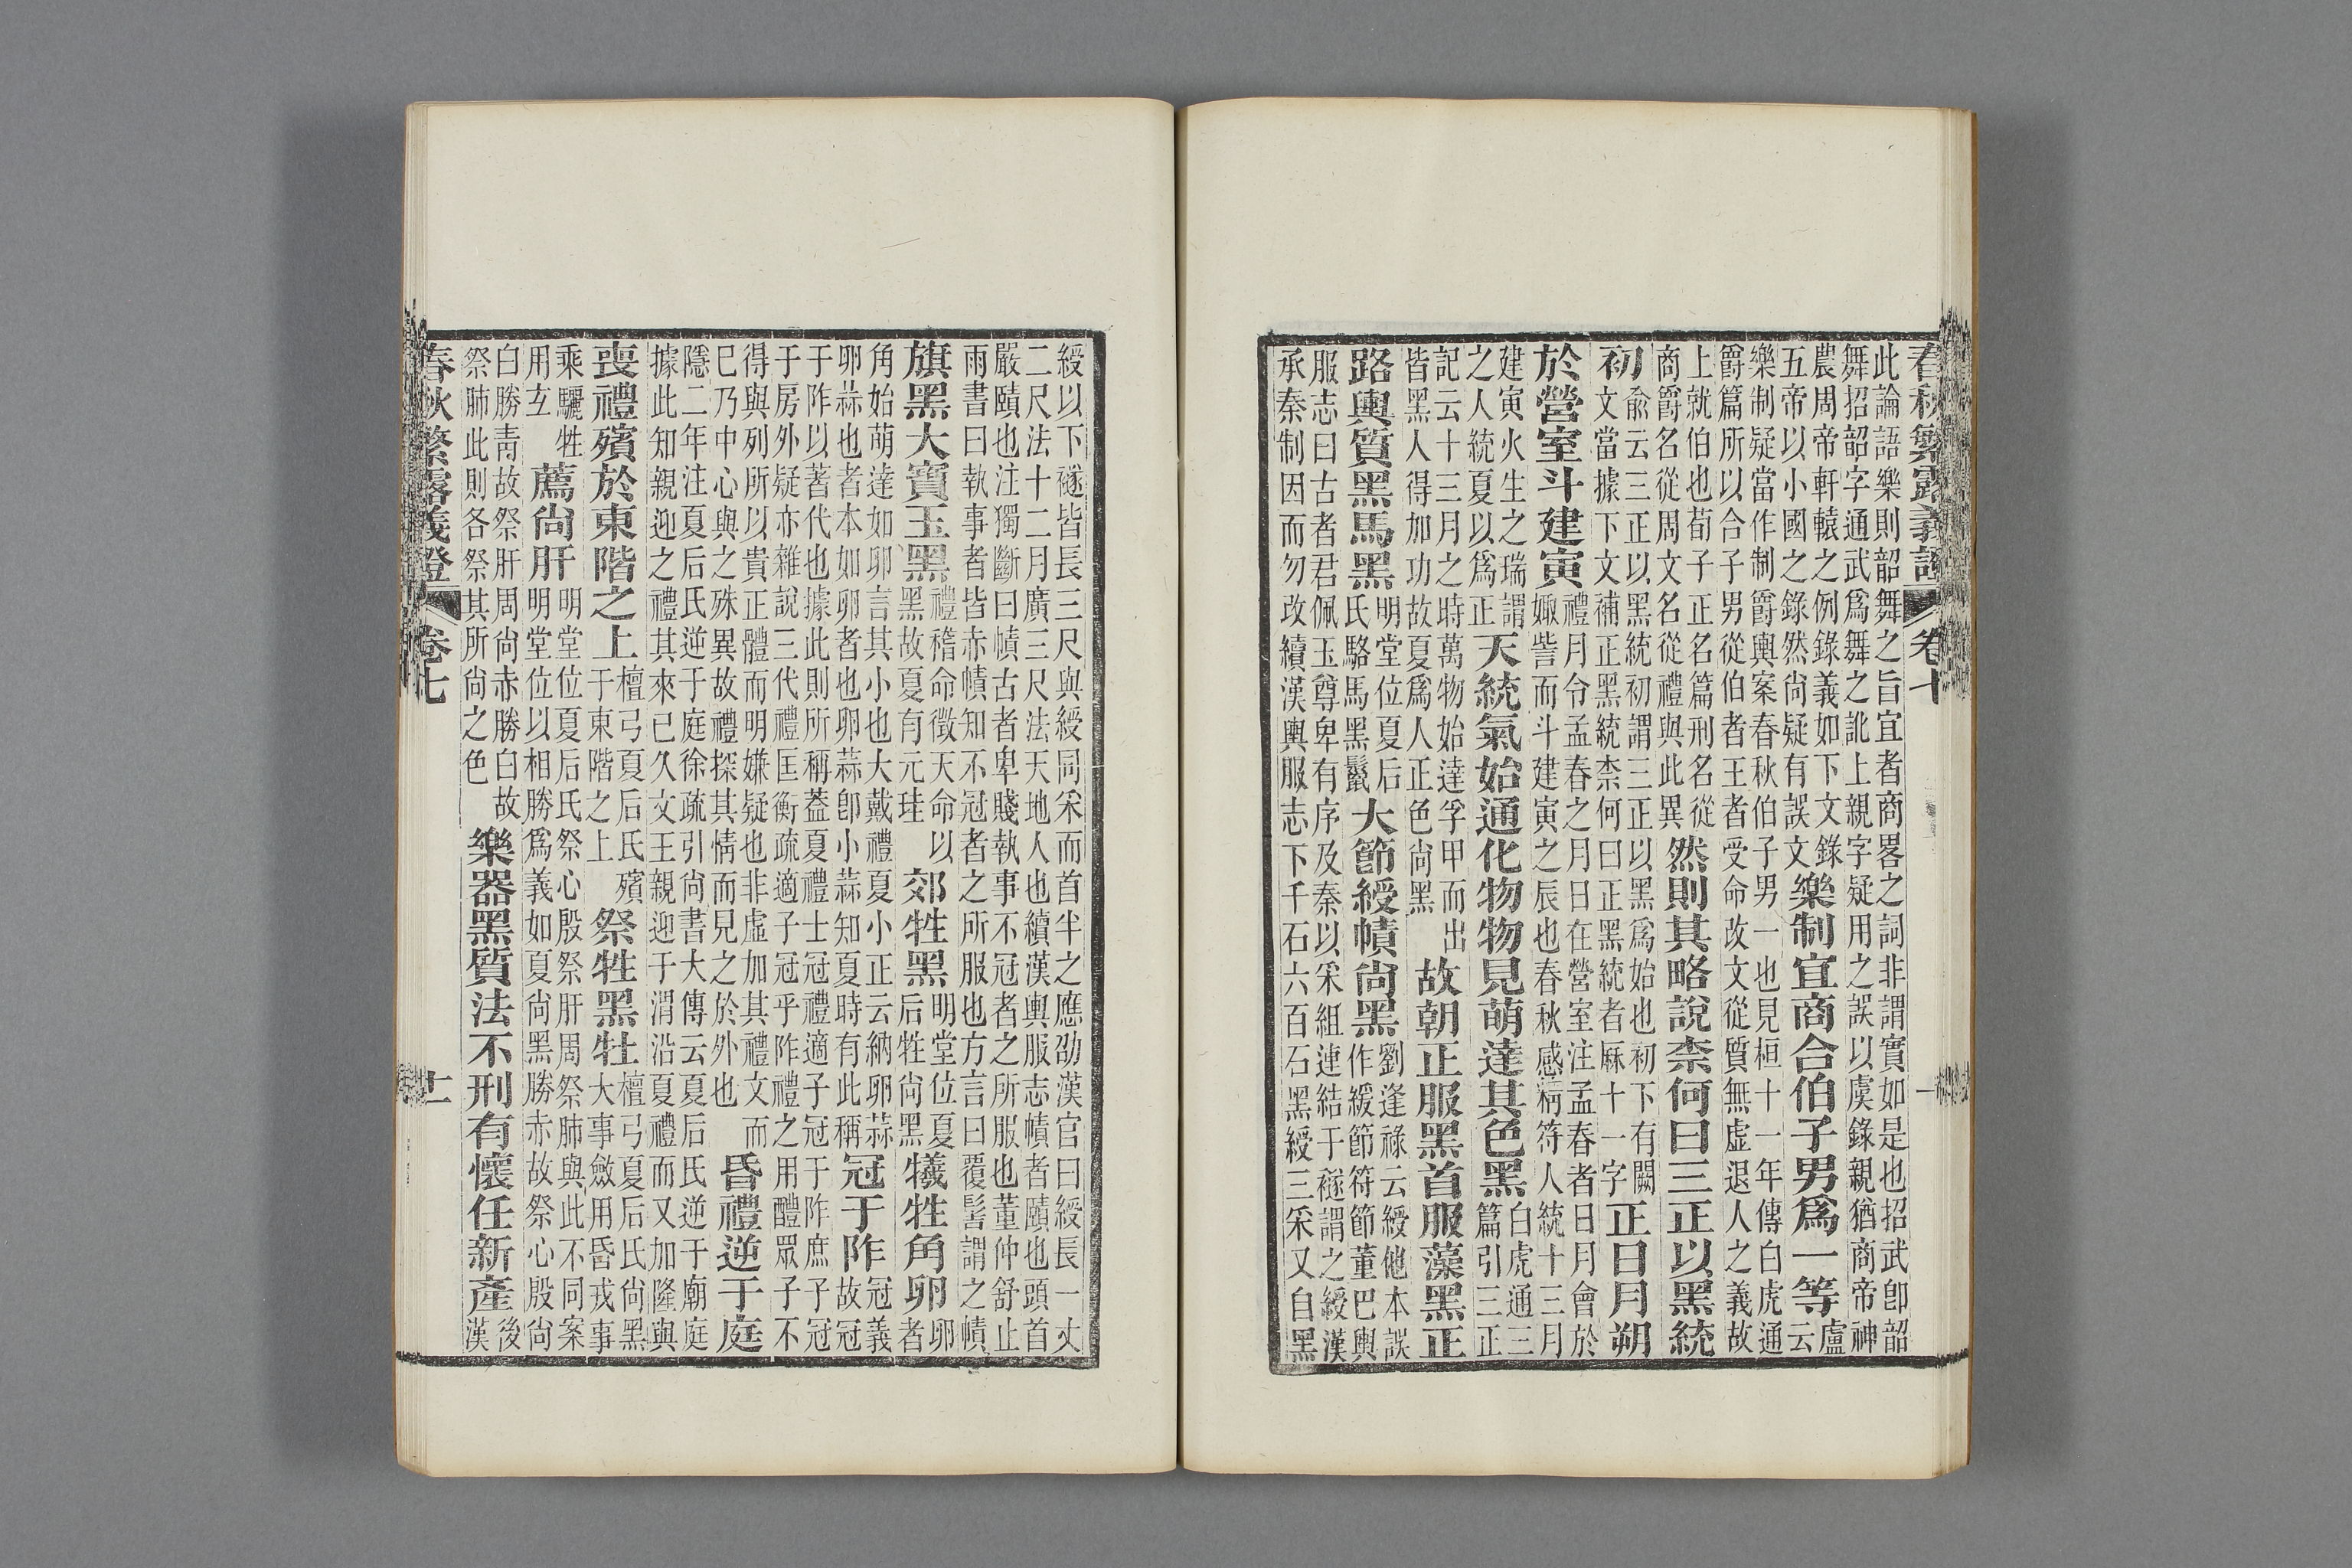 春秋繁露義證 卷七
此論語樂則韶舞之旨宜者商畧之詞非謂實如是也招武卽韶
舞招韶字通武爲舞之訛上親字疑用之誤以虞錄親猶商帝神
農周帝軒轅之例錄義如下文錄
五帝以小國之錄然尚疑有誤文
樂制宜商合伯子男爲一等
盧
云
樂制疑當作制爵輿案春秋伯子男一也見桓十一年傳白虎通
爵篇所以合子男從伯者王者受命改文從質無虛退人之義故
上就伯也荀子正名篇刑名從
商爵名從周文名從禮與此異
然則其略說柰何曰三正以黑統
初
兪云三正以黑統初謂三正以黑爲始也初下有闕
文當據下文補正黑統柰何曰正黑統者厤十一字
正日月朔
於營室斗建寅
禮月令孟春之月日在營室注孟春者日月會於
娵訾而斗建寅之辰也春秋感精符人統十三月
建寅火生之瑞謂
之人統夏以爲正
天統氣始通化物物見萌達其色黑
白虎通三
篇引三正
記云十三月之時萬物始達孚甲而出
皆黑人得加功故夏爲人正色尚黑
故朝正服黑首服藻黑正
路輿質黑馬黑
明堂位夏后
氏駱馬黑鬣
大節綬幘尚黑
劉逢祿云綬他本誤
作緩節符節董巴輿
服志曰古者君佩玉尊卑有序及秦以采組連結于䍁謂之綬漢
承秦制因而勿改續漢輿服志下千石六百石黑綬三采又自黑
綬以下䍁皆長三尺與綬同采而首半之應劭漢官曰綬長一丈
二尺法十二月廣三尺法天地人也續漢輿服志幘者賾也頭首
嚴賾也注獨斷曰幘古者卑賤執事不冠者之所服也董仲舒止
雨書曰執事者皆赤幘知不冠者之所服也方言曰覆髻謂之幘
旗黑大寶玉黑
禮稽命徵天命以
黑故夏有元珪
郊牲黑
明堂位夏
后牲尚黑
犧牲角卵
卵
者
角始萌達如卵言其小也大戴禮夏小正云納卵蒜
卵蒜也者本如卵者也卵蒜卽小蒜知夏時有此稱
冠于阼
冠義
故冠
于阼以著代也據此則所稱蓋夏禮士冠禮適子冠于阼庶子冠
于房外疑亦雜說三代禮匡衡疏適子冠乎阼禮之用醴眾子不
得與列所以貴正體而明嫌疑也非虛加其禮文而
已乃中心與之殊異故禮探其情而見之於外也
昏禮逆于庭
隱二年注夏后氏逆于庭徐疏引尚書大傳云夏后氏逆于廟庭
據此知親迎之禮其來已久文王親迎于渭沿夏禮而又加隆與
喪禮殯於東階之上
檀弓夏后氏殯
于東階之上
祭牲黑牡
檀弓夏后氏尚黑
大事斂用昏戎事
乘驪牲
用玄
薦尚肝
明堂位夏后氏祭心殷祭肝周祭肺與此不同案
明堂位以相勝爲義如夏尚黑勝赤故祭心殷尚
白勝青故祭肝周尚赤勝白故
祭肺此則各祭其所尚之色
樂器黑質法不刑有懷任新產
後
漢
春秋繁露義證 卷七 十一